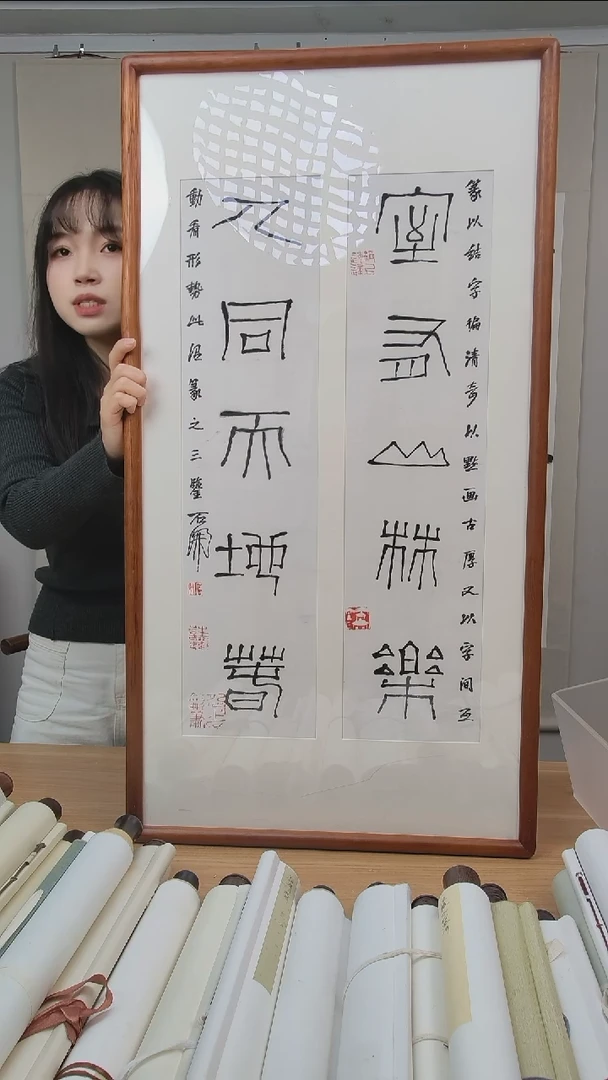 篆以結字清奇以點画古厚又以字间互
室有山林樂
人同天地春
動看形勢此篆之三鑒石開